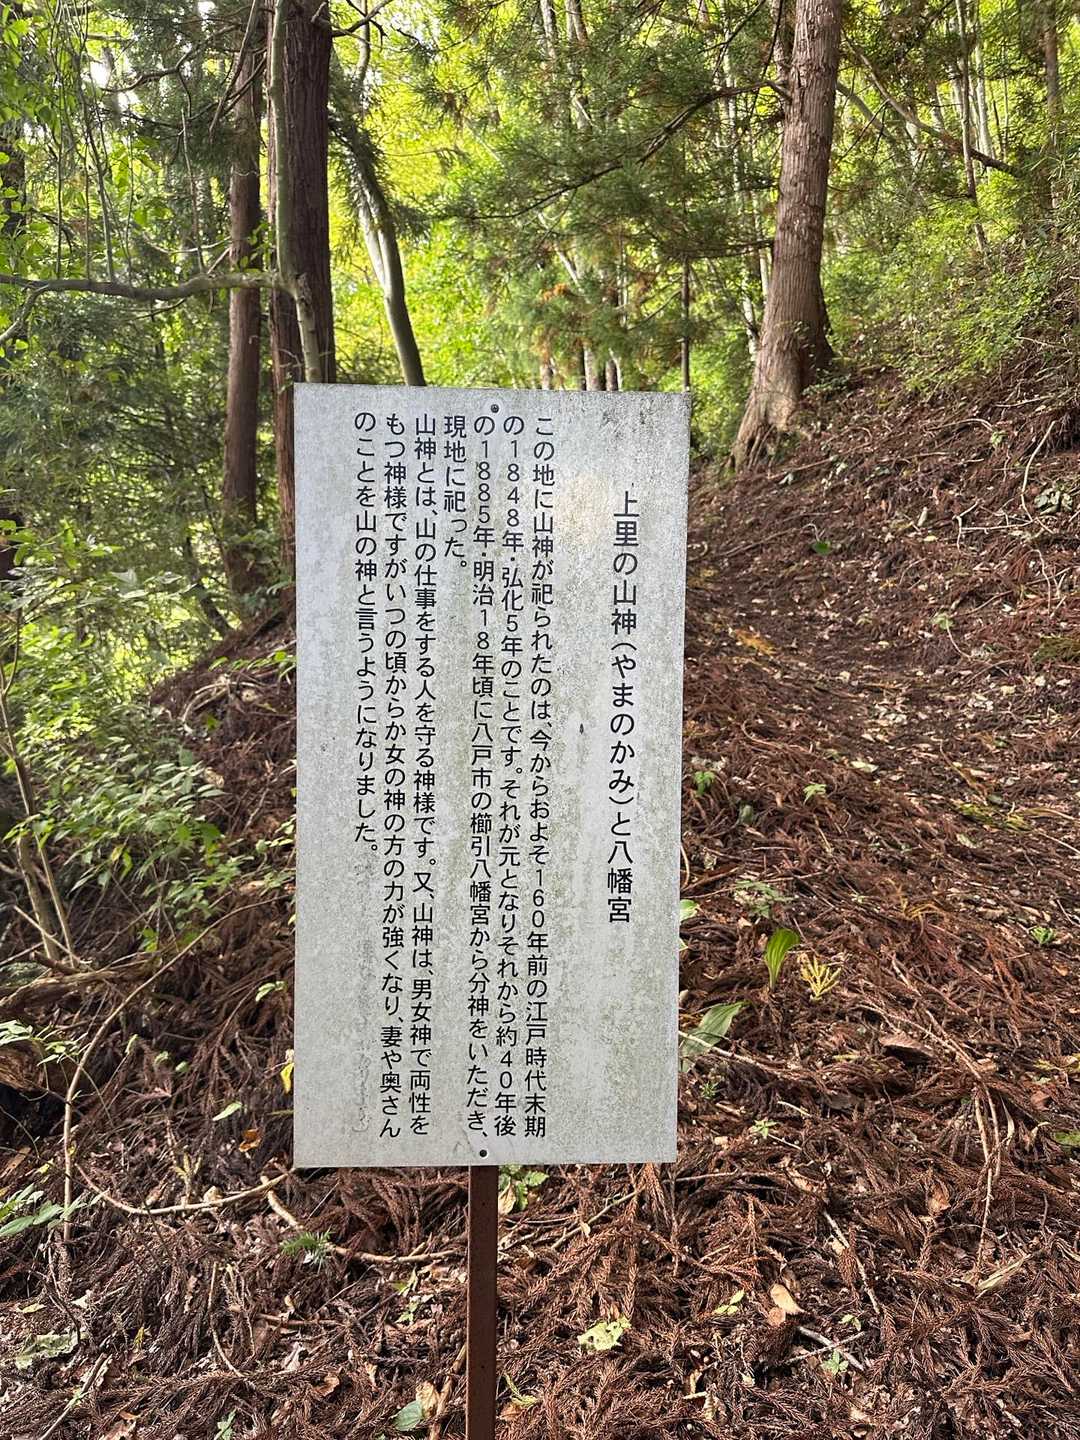 上里の山神(やまのかみ)と八幡宮
この地に山神が祀られたのは、今からおよそ160年前の江戸時代末期
の1848年・弘化5年のことです。それが元となりそれから約40年後
の1885年・明治18年頃に八戸市の櫛引八幡宮から分神をいただき、
現地に祀った。
山神とは、山の仕事をする人を守る神様です。又、山神は、男女神で両性を
もつ神様ですがいつの頃からか女の神の方の力が強くなり、妻や奥さん
のことを山の神と言うようになりました。